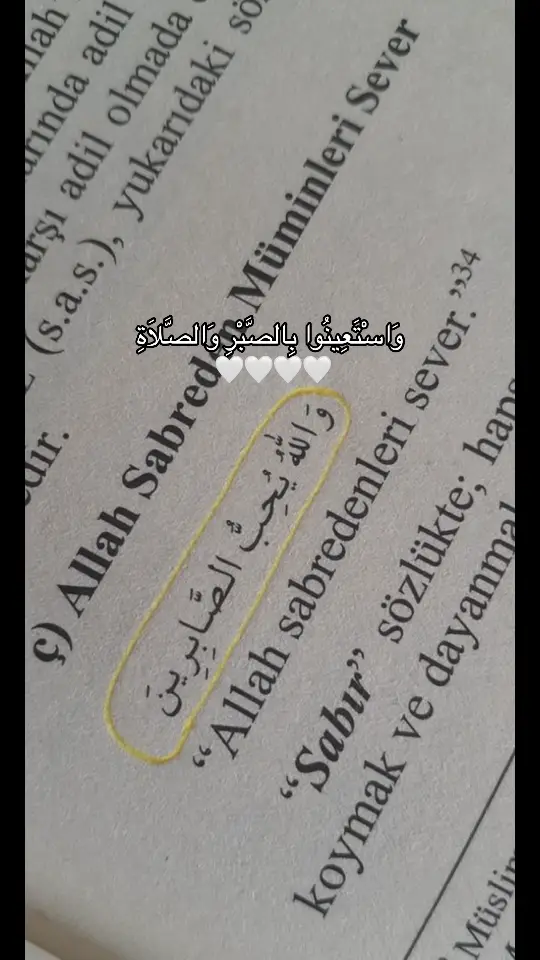 llah
arında adil
arşı adil olmada
(s.a.s.), yukarıdaki sö
dir.
ç) Allah Sabreden Müminleri Sever
وَاسْتَعِينُوا بِالصَّبْرِ وَالصَّلَاةِ
🤍🤍🤍🤍
وَاللّٰهُ يُحِبُّ الصَّابِرِينَ
“Allah sabredenleri sever.”34
“Sabır” sözlükte; haps
koymak ve dayanmal
Müslim